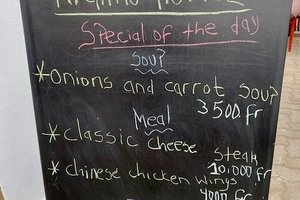 Special of the day
Soup
*Onions and carrot soup
3500 fr
Meal
*classic cheese steak
10,000 fr
*chinese chicken wings
4000 fr